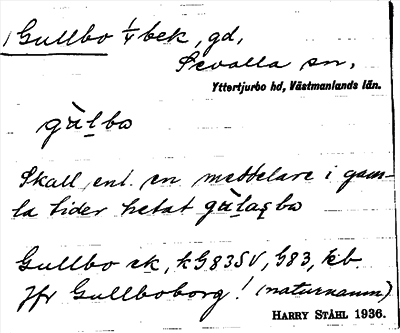 Gullbo 1/4 bek, gd,
Sevalla sn,
Yttertjurbo hd, Västmanlands län.
gùlbo
Skall, enl. en meddelare i gam-
la tider hetat
Gullbo ek, kG83SV, G83, kb.
Jfr Gullboborg! (naturnamn)
HARRY STÅHL 1936.